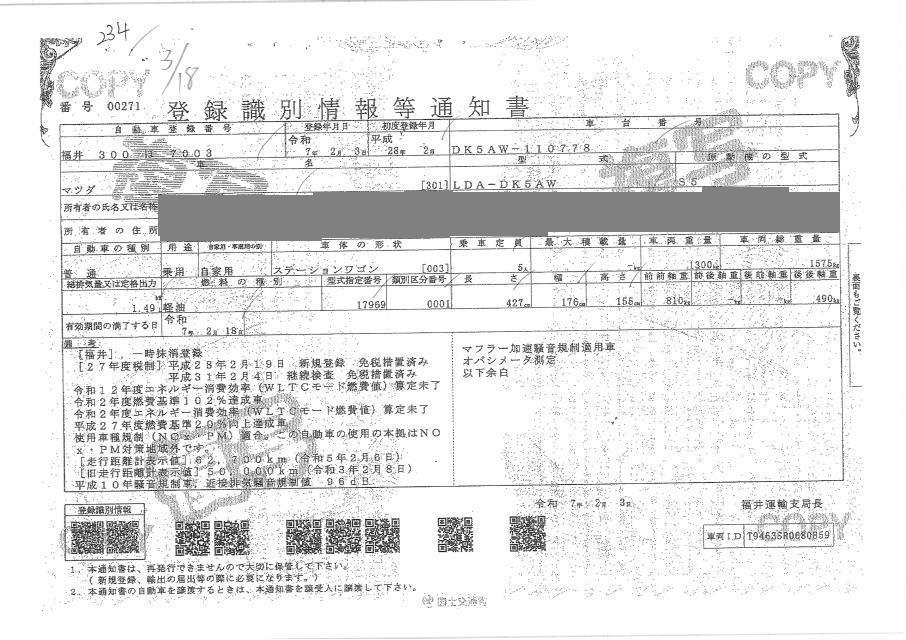 234
3/18
COPY COPY
番号 00271 登録識別情報等通知書
自動車登録番号 登録年月日 初度登録年月 車台番号
福井 300 は 7003 令和 7年 2月 3日 平成 28年 2月 DK5AW-110778
車名 型式 原動機の型式
マツダ [301] LDA-DK5AW S5
所有者の氏名又は名称
所有者の住所
自動車の種別 用途 自家用・事業用の別 車体の形状 乗車定員 最大積載量 車両重量 車両総重量
普通 乗用 自家用 ステーションワゴン [003] 5人 -kg 1300kg 1575kg
総排気量又は定格出力 燃料の種別 型式指定番号 類別区分番号 長さ 幅 高さ 前前軸重 前後軸重 後前軸重 後後軸重
1.49 軽油 17969 0001 427cm 176cm 155cm 810kg -kg -kg 490kg
有効期間の満了する日 令和 7年 2月 18日
備考
[福井],一時抹消登録
[27年度税制] 平成28年2月19日 新規登録 免税措置済み
平成31年2月4日 継続検査 免税措置済み
令和12年度エネルギー消費効率(WLTCモード燃費値)算定未了
令和2年度燃費基準102%達成車
令和2年度エネルギー消費効率(WLTCモード燃費値)算定未了
平成27年度燃費基準20%向上達成車
使用車種規制(NOx・PM)適合。この自動車の使用の本拠はNO
x・PM対策地域外です。
[走行距離計表示値] 62,700km(令和5年2月6日)
[旧走行距離計表示値] 50,000km(令和3年2月8日)
平成10年騒音規制車,近接排気騒音規制値 96dB
マフラー加速騒音規制適用車
オパシメータ測定
以下余白
裏面もご覧ください。
令和 7年 2月 3日 福井運輸支局長
登録識別情報
COPY COPY
車両ID T9463SR0680859
1. 本通知書は、再発行できませんので大切に保管して下さい。
(新規登録、輸出の届出等の際に必要になります。)
2. 本通知書の自動車を譲渡するときは、本通知書を譲受人に譲渡して下さい。
国土交通省